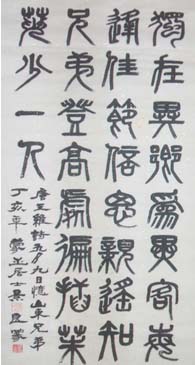 獨在異鄉為異客每
逢佳節倍思親遙知
兄弟登高處遍插茱
萸少一人
唐王維詩九月九日憶山東兄弟
丁亥年 居士